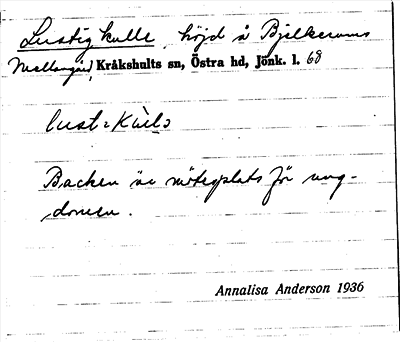 Lustigkulle, höjd å Bjelkerums
Mellangård, Kråkshults sn, Östra hd, Jönk. l. 68
Backen är mötesplats för ung-
domen.
Annalisa Anderson 1936